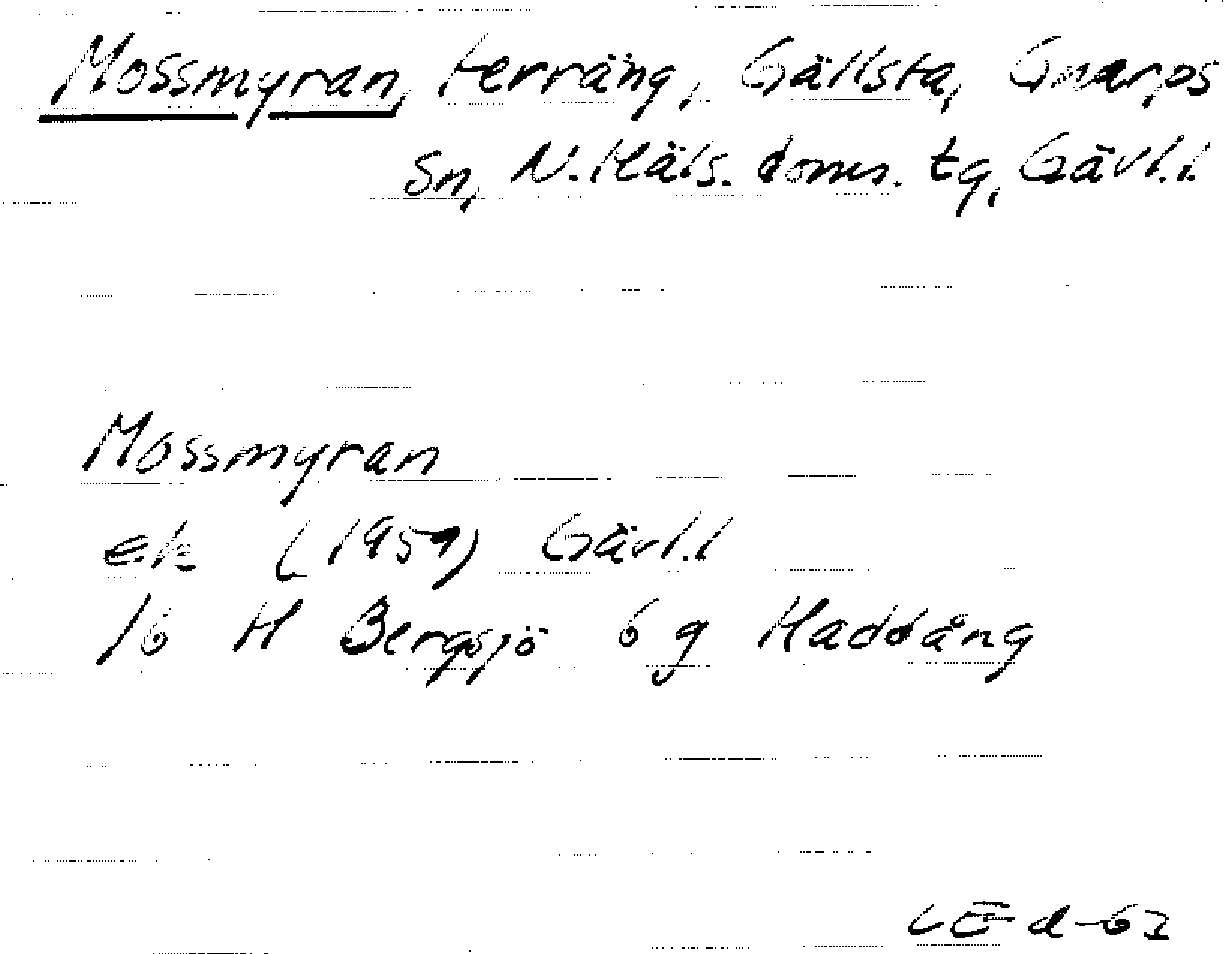 Mossmyran, terräng, Gällsta, Gnarps
Sn, N. Häls. doms. tg, Gävl.l.
Mossmyran
ek (1959) Gävl.l
16 H Bergsjö 6 g Haddång